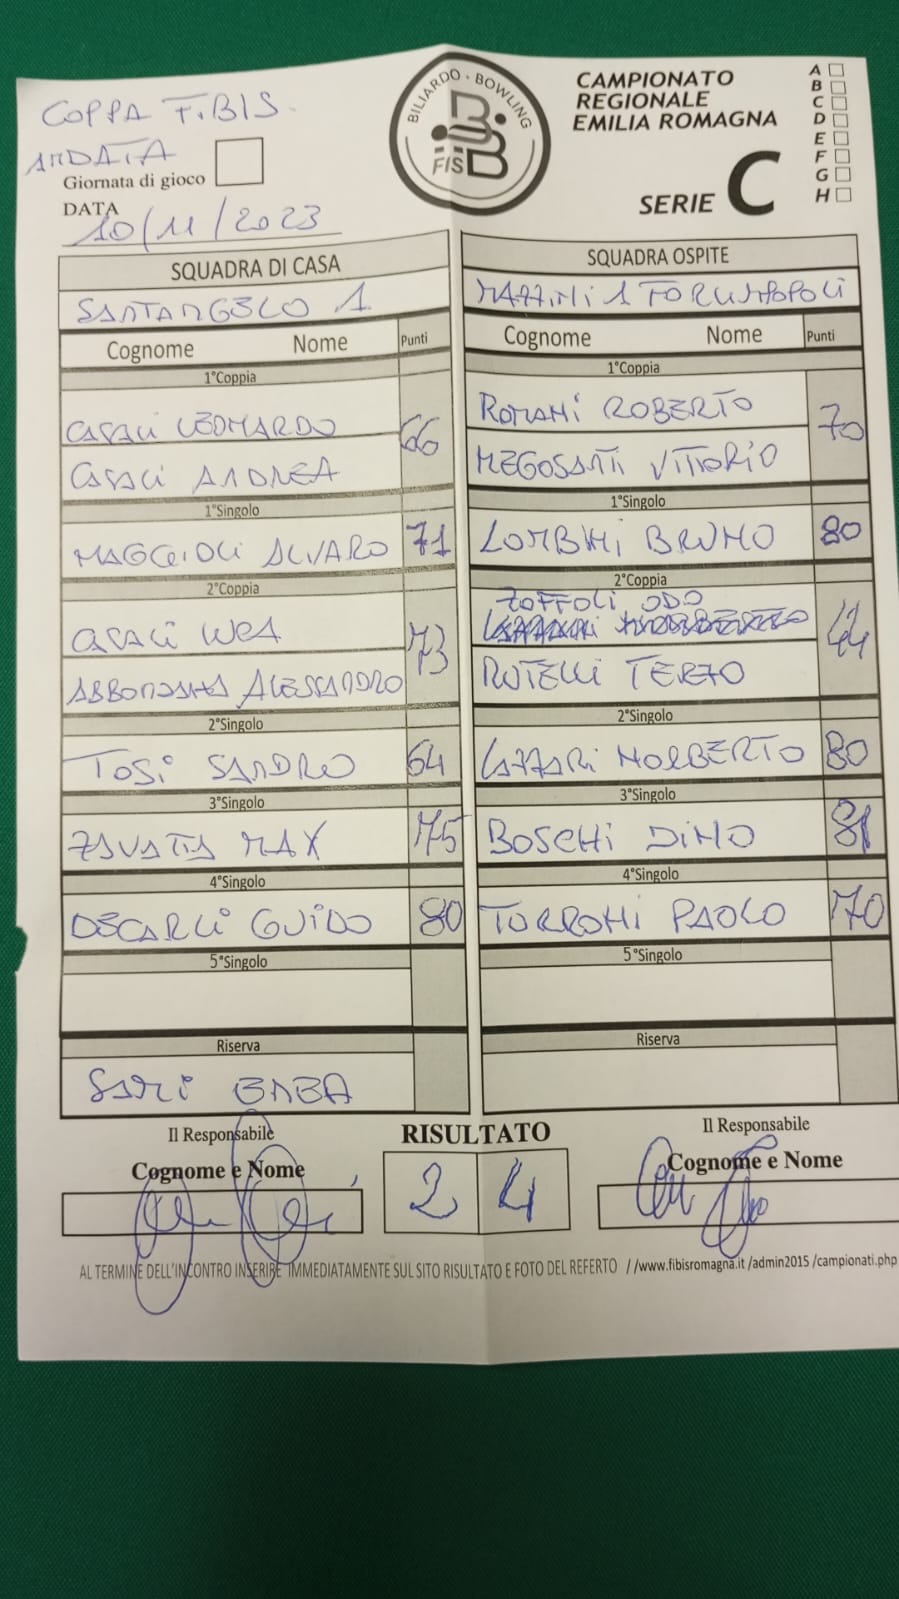 COPPA F.BIS.
ANDATA
Giornata di gioco
DATA
10/11/2023
BILIARDO · BOWLING
FISBB
CAMPIONATO
REGIONALE
EMILIA ROMAGNA
SERIE C
A
B
C
D
E
F
G
H
SQUADRA DI CASA
SANTANGELO 1
Cognome Nome Punti
1°Coppia
CASALI LEONARDO
66
CASALI ANDREA
1°Singolo
MAGGIOLI ALVARO 71
2°Coppia
CASALI LUCA
73
ABBONDANZA ALESSANDRO
2°Singolo
TOSI SANDRO 64
3°Singolo
ZAVATTA MAX 75
4°Singolo
DECARLI GUIDO 80
5°Singolo
Riserva
SARLI
SQUADRA OSPITE
MAZZINI 1 FORLIMPOPOLI
Cognome Nome Punti
1°Coppia
ROMANI ROBERTO
70
MEGOSANTI VITTORIO
1°Singolo
LOMBINI BRUNO 80
2°Coppia
ZOFFOLI ODO
44
RUTELLI TERZO
2°Singolo
LAZZARI NORBERTO 80
3°Singolo
BOSCHI DINO 81
4°Singolo
TORRONI PAOLO 70
5°Singolo
Riserva
Il Responsabile
Cognome e Nome
RISULTATO
2 4
Il Responsabile
Cognome e Nome
AL TERMINE DELL'INCONTRO INSERIRE IMMEDIATAMENTE SUL SITO RISULTATO E FOTO DEL REFERTO //www.fibisromagna.it /admin2015 /campionati.php